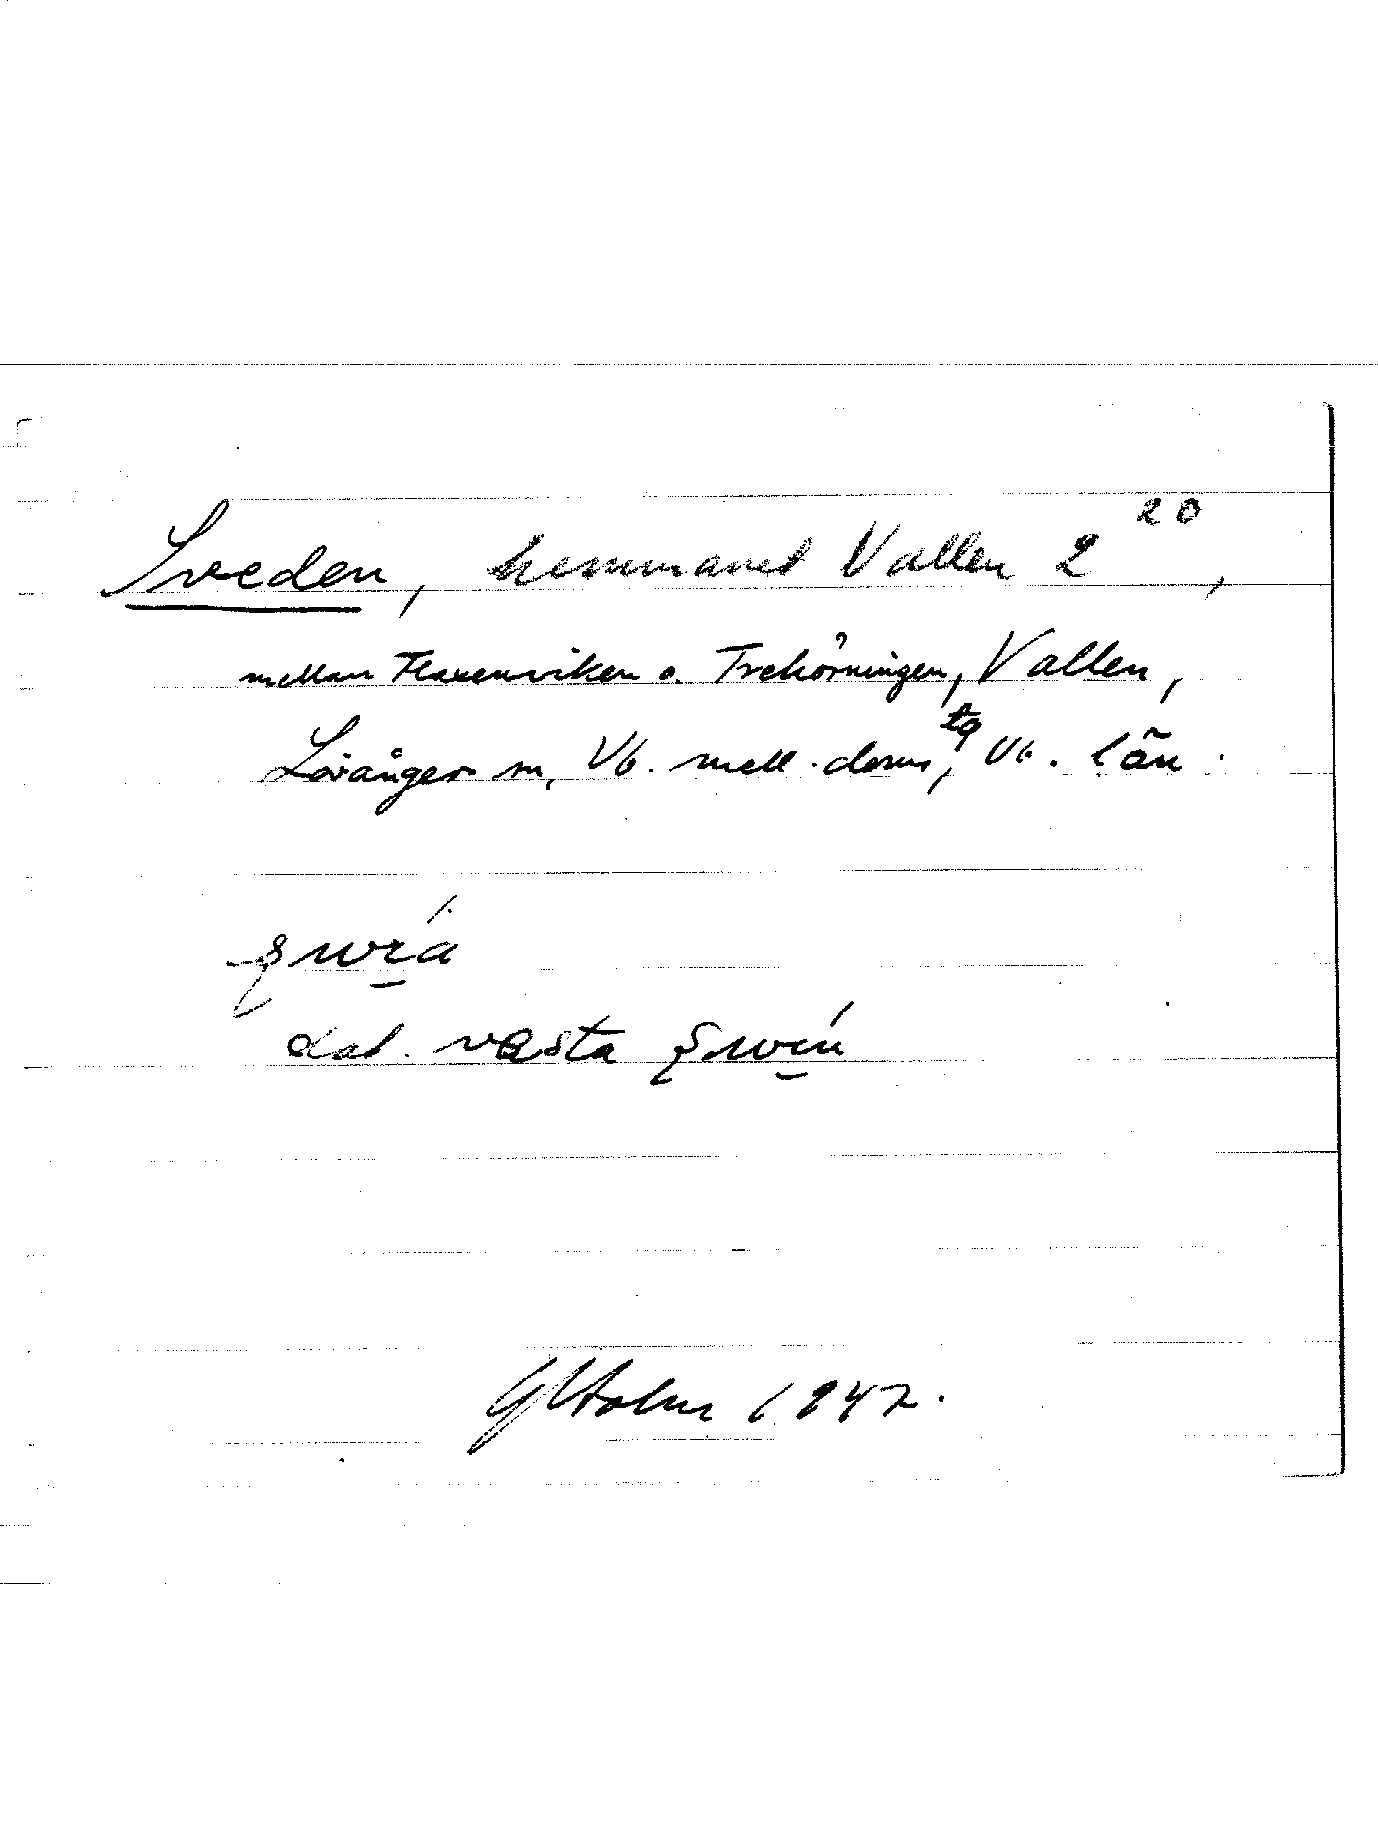 Sveden, hemmanet Vallen 2²⁰,
mellan Flarenviken o. Trehörningen, Vallen,
Lövånger sn, Vb. mell. doms tg, Vb. län.
dat. vęsta
GHolm 1942.